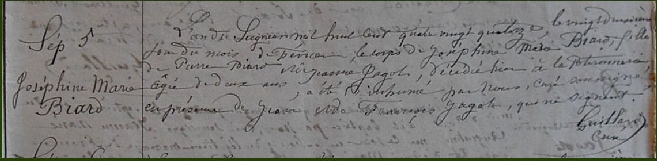 Sép 5
Joséphine Marie
Biard
L'an du Seigneur mil huit cent quatre vingt quatorze, le vingt deuxième
jour du mois de Février le corps de Joséphine Marie Biard, fille
de Pierre Biard et de Jeanne Jagot, décédée hier à la
âgée de deux ans, a été inhumé par Nous, Curé soussigné,
en présence de Jean et de François Jagot, qui ne signent.
Guillard
Curé